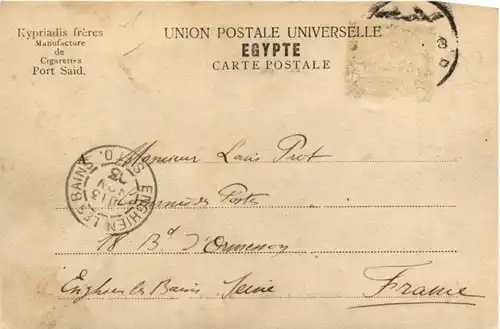 Kypriadis frères
Manufacture
de
Cigarettes
Port Said.
UNION POSTALE UNIVERSELLE
EGYPTE
CARTE POSTALE
Monsieur Louis Prot
des Postes
18 Bd d'Ormesson
Enghien les Bains Seine
France
ENGHIEN LES BAINS S. & O.